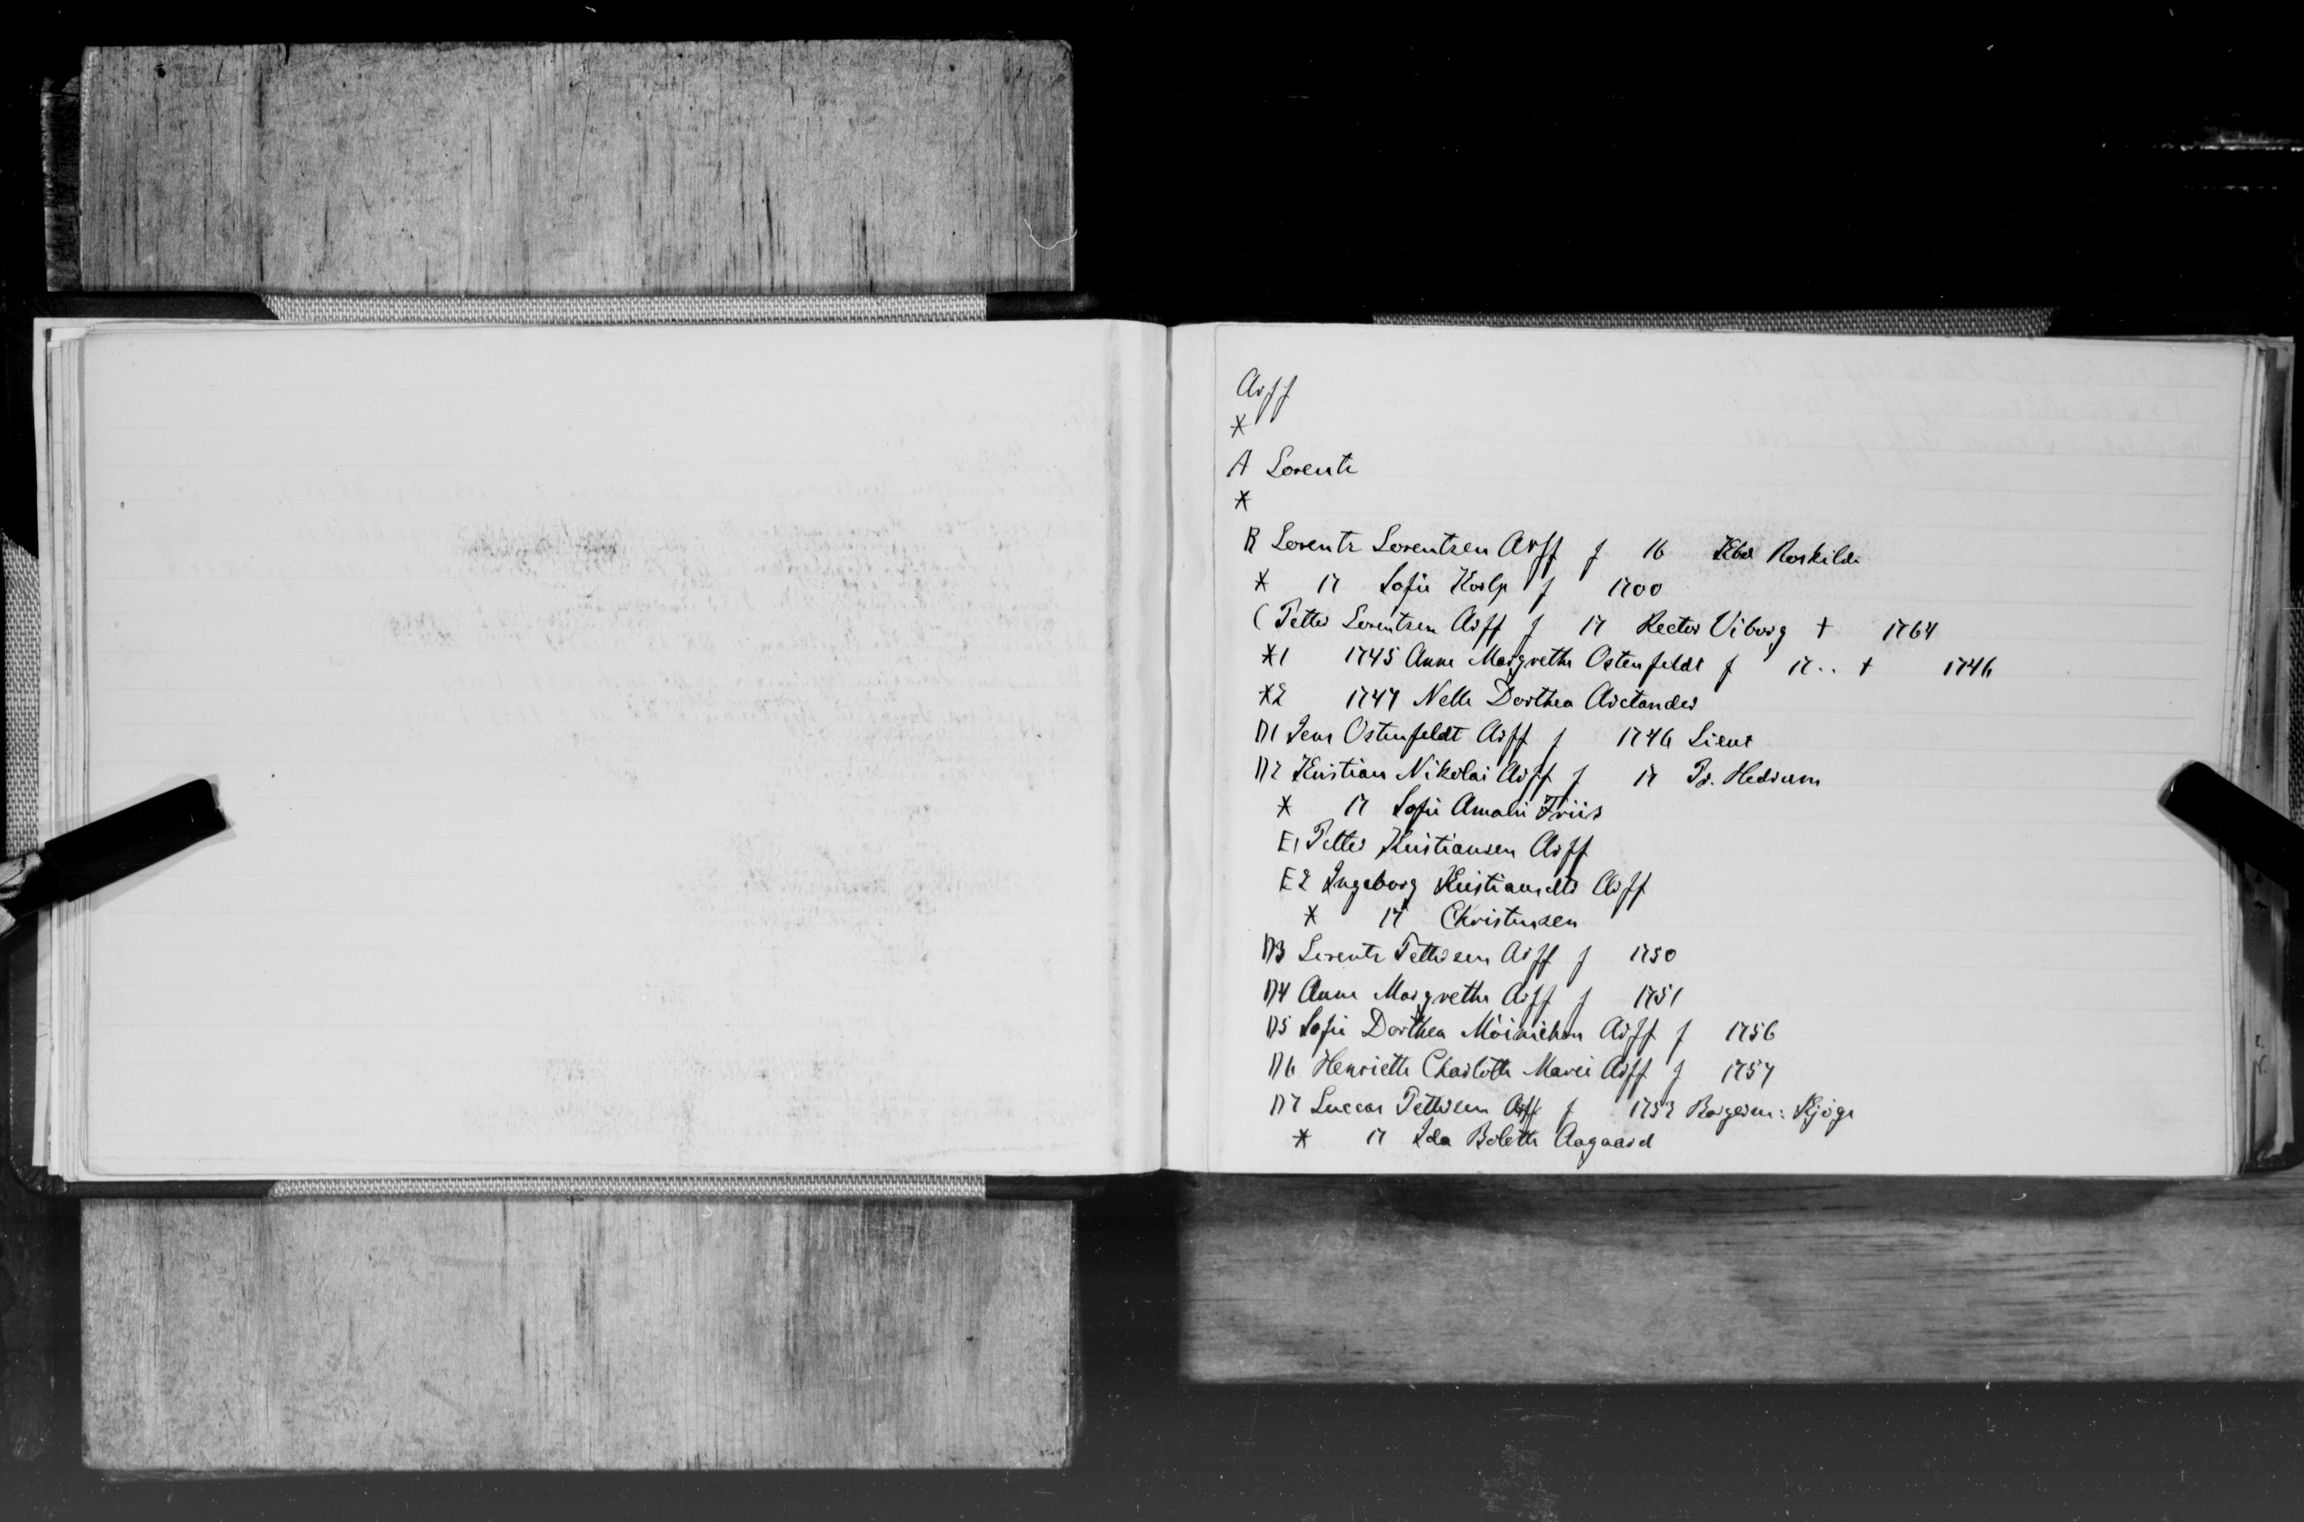 Arff
*
A Lorentz
*
B Lorentz Lorentzen Arff f 16 Kbd Roskilde
* 17 Sofie f 1700
C Petter Lorentzen Arff f 17 Rector Viborg † 1764
*1 1745 Anne Margrethe Ostenfeldt f 17.. † 1746
*2 1747 Nelle Dorthea Arctander
D1 Jens Ostenfeldt Arff f 1746 Lieut
D2 Kristian Nikolai Arff f 17 Pr. Hedrum
* 17 Sofie Amalie Friis
E1 Petter Kristiansen Arff
E2 Ingeborg Kristiansdtr Arff
* 17 Christensen
D3 Lorentz Pettersen Arff f 1750
D4 Anne Margrethe Arff f 1751
D5 Sofie Dorthea Möinichen Arff f 1756
D6 Henriette Charlotte Marie Arff f 1757
D7 Luccas Pettersen Arff f 1752 Borgerm: Kjöge
* 17 Ida Bolette Aagaard